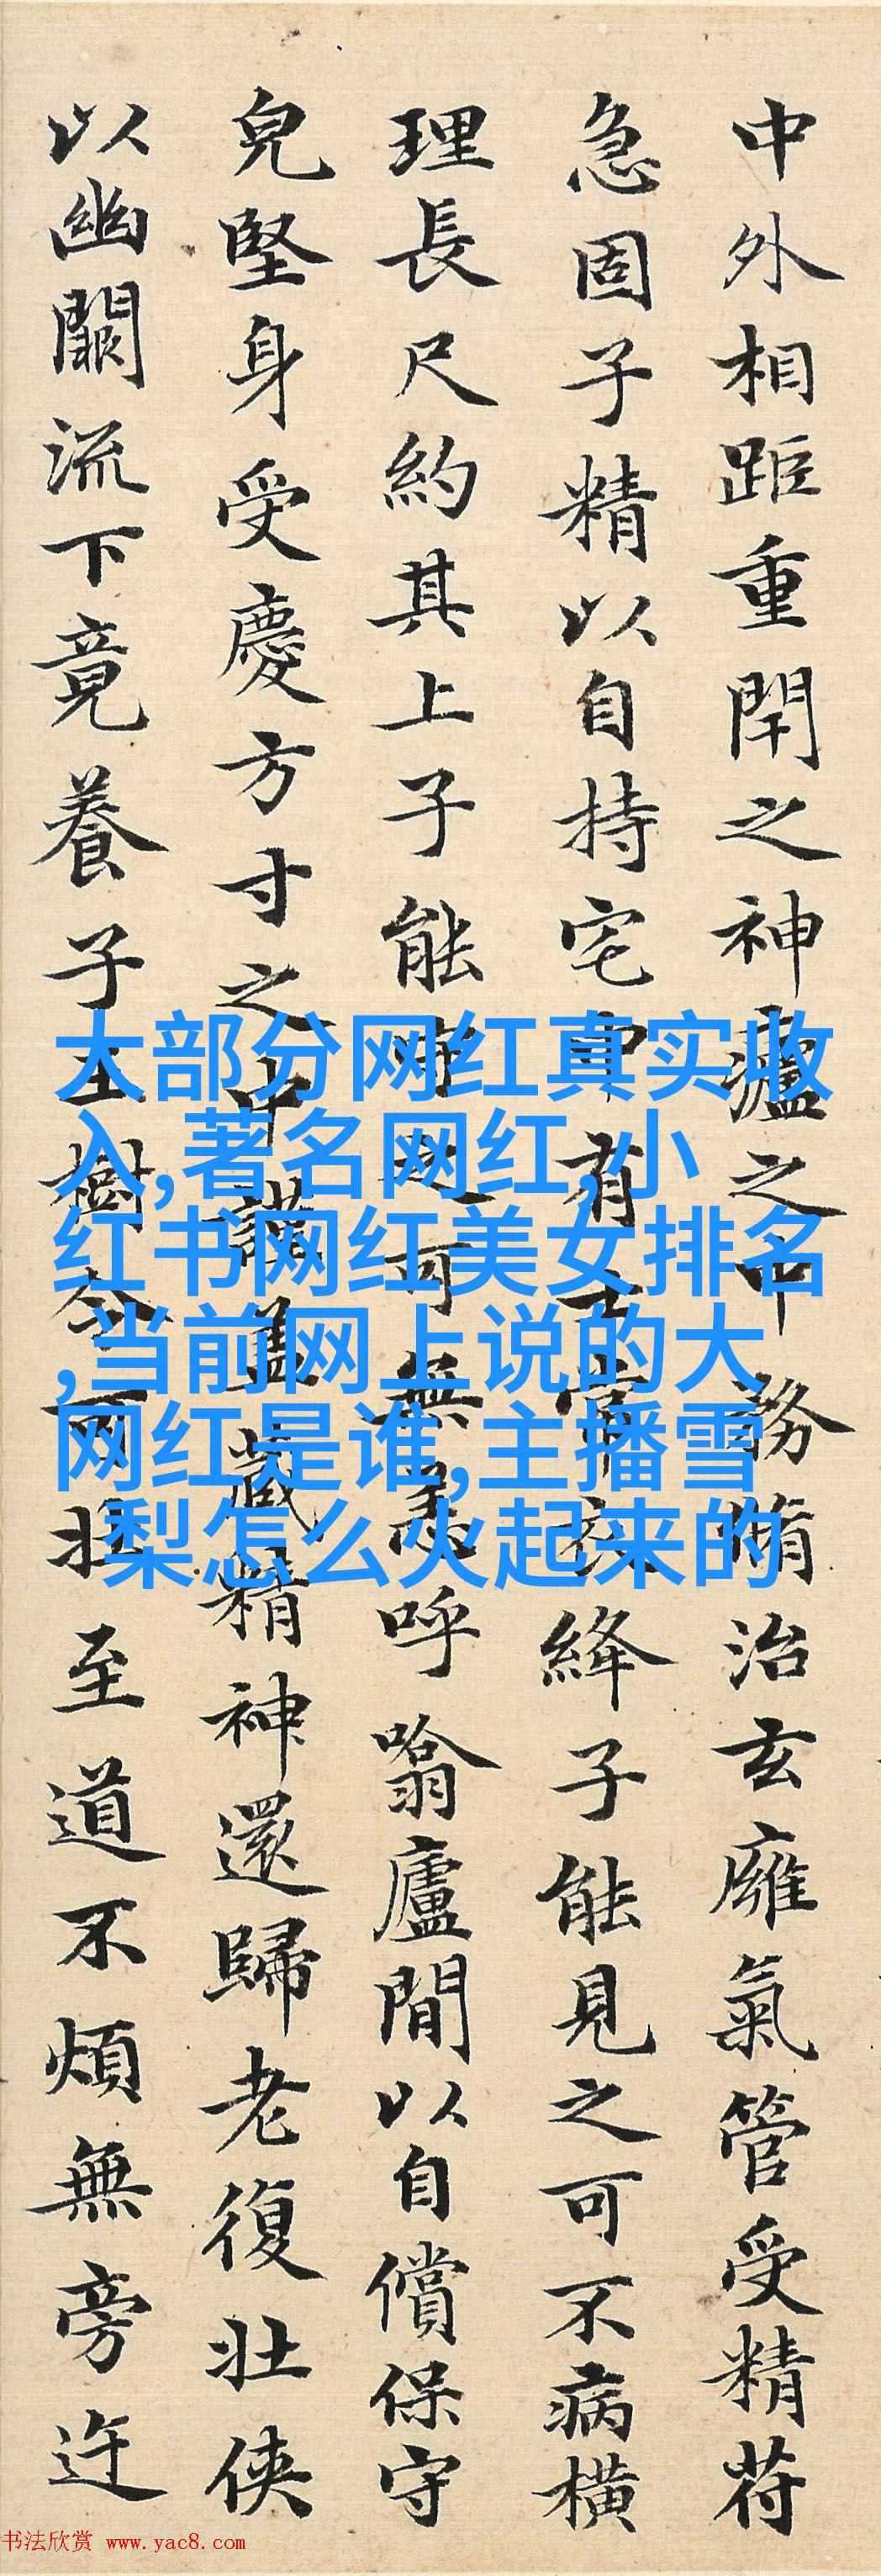 中外相距重閇之神廬之中務脩治玄廱氣管受精符
急固子精以自持宅中有士常衣絳子能見之可不病橫
理長尺約其上子能守之可無恙呼噏廬間以自償保守
皃堅身受慶方寸之中謹蓋藏精神還歸老復壯俠
以幽闕流下竟養子玉樹令可壯至道不煩無旁迕
大部分网红真实收
入,著名网红,小
红书网红美女排名
,当前网上说的大
网红是谁,主播雪
梨怎么火起来的
书法欣赏 www.yac8.com